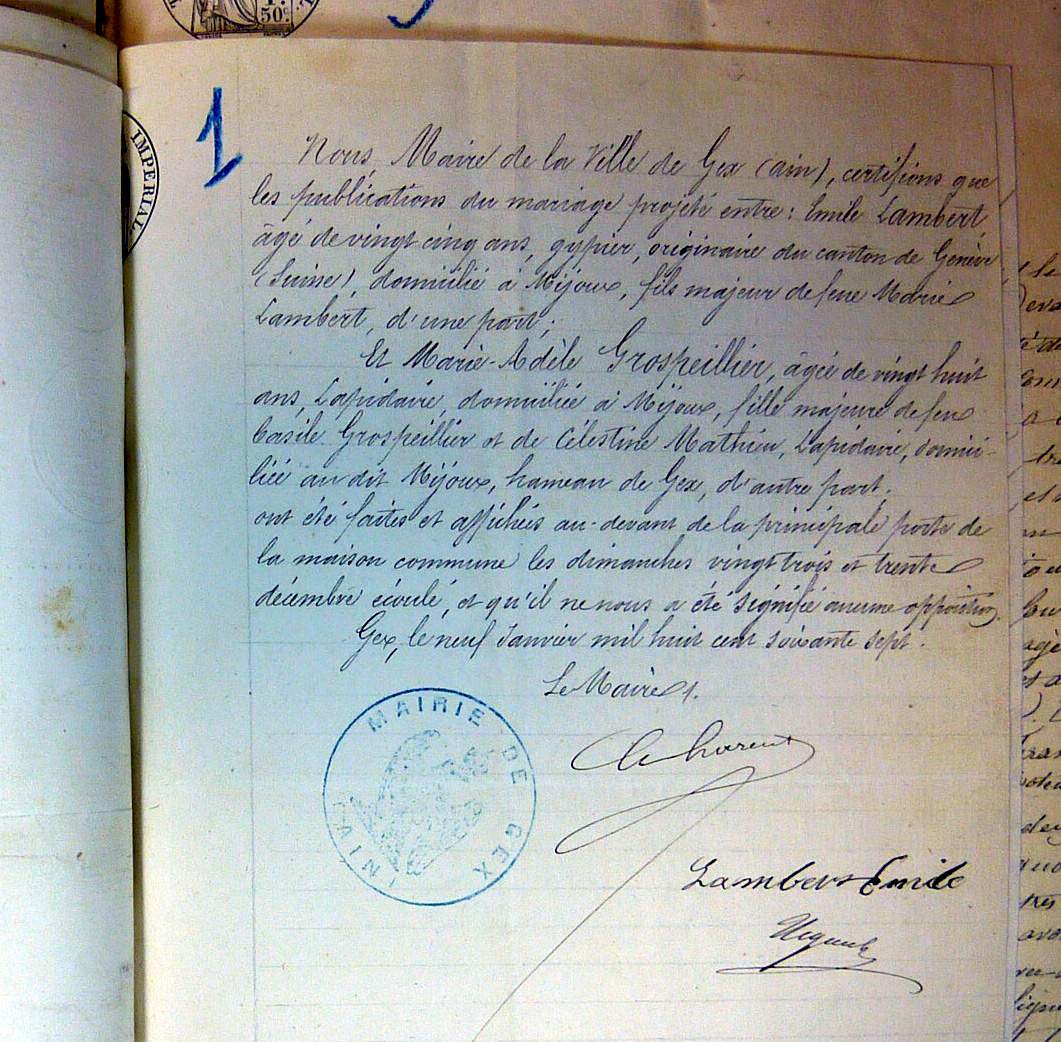 50c
IMPERIAL
1
Nous, Maire de la Ville de Gex (ain), certifions que
les publications du mariage projeté entre : Emile Lambert,
âgé de vingt cinq ans, gypier, originaire du canton de Genève
(Suisse), domicilié à Mijoux, fils majeur de feue Marie
Lambert, d'une part ;
Et Marie-Adèle Grospeillier, âgée de vingt huit
ans, Lapidaire, domiciliée à Mijoux, fille majeure de feu
Basile Grospeillier et de Célestine Mathieu, Lapidaire, domici-
liée au dit Mijoux, hameau de Gex, d'autre part,
ont été faites et affichées au-devant de la principale porte de
la maison commune les dimanches vingt trois et trente
décembre écoulé, et qu'il ne nous a été signifié aucune opposition.
Gex, le neuf Janvier mil huit cent soixante sept.
Le Maire
MAIRIE DE GEX
(AIN)
Lambert Emile